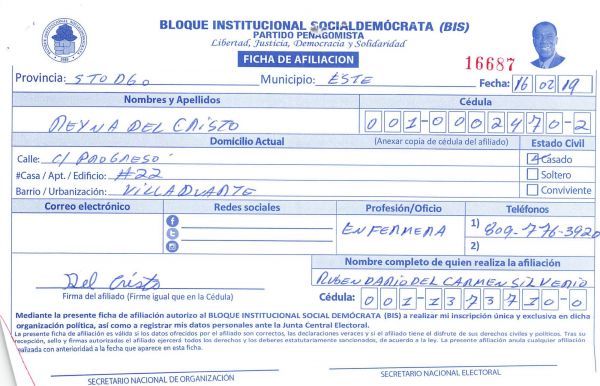 BLOQUE INSTITUCIONAL SOCIALDEMÓCRATA (BIS)
PARTIDO PEÑAGOMISTA
Libertad, Justicia, Democracia y Solidaridad
FICHA DE AFILIACION
16687
Provincia: STO DGO Municipio: ESTE Fecha: 16 02 19
Nombres y Apellidos Cédula
REYNA DEL CRISTO 001-0002470-2
Domicilio Actual (Anexar copia de cédula del afiliado) Estado Civil
Calle: C/ PROGRESO Casado
#Casa / Apt. / Edificio: #22 Soltero
Barrio / Urbanización: VILLA DUARTE Conviviente
Correo electrónico Redes sociales Profesión/Oficio Teléfonos
ENFERMERA 1) 809-776-3920
2)
Nombre completo de quien realiza la afiliación
Del Cristo RUBEN DARIO DEL CARMEN SILVERIO
Firma del afiliado (Firme igual que en la Cédula) Cédula: 001-1373710-0
Mediante la presente ficha de afiliación autorizo al BLOQUE INSTITUCIONAL SOCIAL DEMÓCRATA (BIS) a realizar mi inscripción única y exclusiva en dicha
organización política, así como a registrar mis datos personales ante la Junta Central Electoral.
La presente ficha de afiliación es válida si los datos ofrecidos por el afiliado son correctos, las declaraciones veraces y si el afiliado tiene el disfrute de sus derechos civiles y políticos. Tras su
recepción, sello y firmas autorizadas el afiliado ejercerá todos los derechos y los deberes estatutariamente sancionados, de acuerdo a la ley. La presente afiliación anula cualquier afiliación
realizada con anterioridad a la fecha que aparece en esta ficha.
SECRETARIO NACIONAL DE ORGANIZACIÓN SECRETARIO NACIONAL ELECTORAL